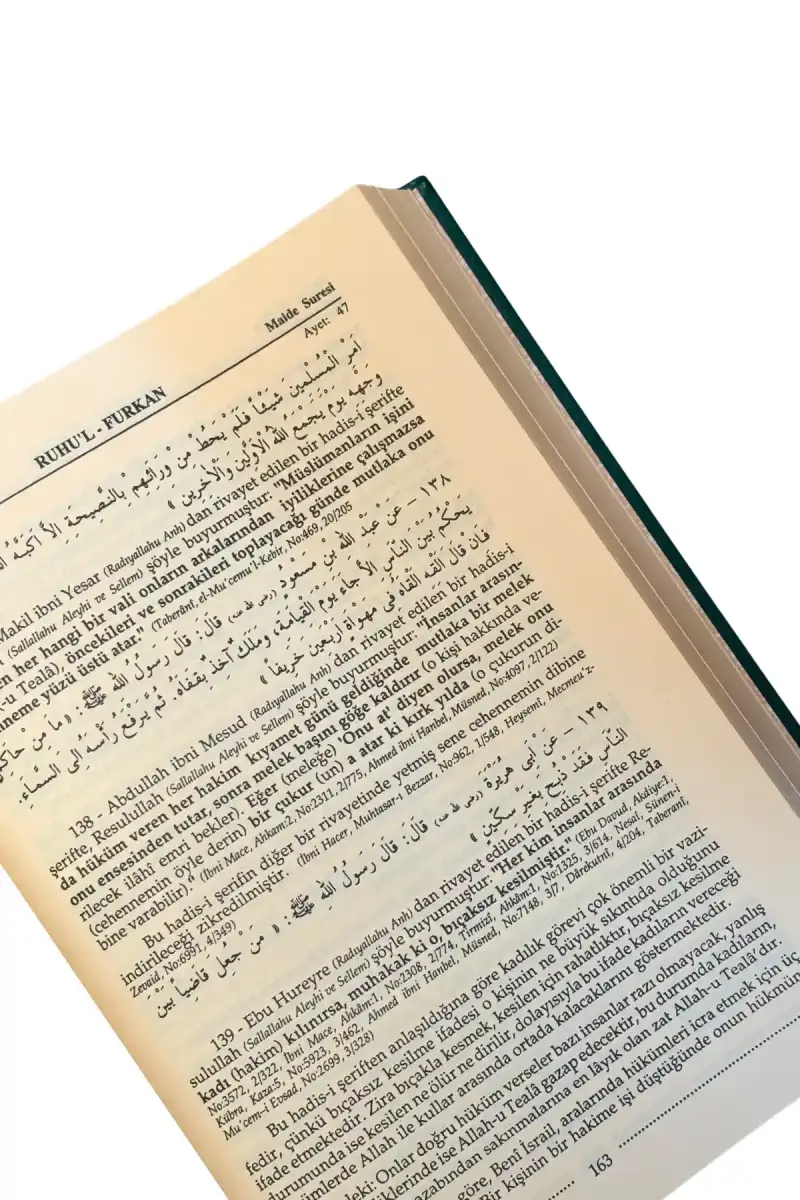 RUHU'L - FURKAN
Maide Suresi
Ayet: 47
اَمْرِ الْمُسْلِمِينَ شَيْئًا فَلَمْ يَحُطْ مِنْ وَرَائِهِمْ بِالنَّصِيحَةِ اِلاَّ اَكَبَّهُ
وَجْهِهِ يَوْمَ يَجْمَعُ اللّٰهُ الْاَوَّلِينَ وَالْاٰخِرِينَ »
Makil ibni Yesar (Radıyallahu Anh) dan rivayet edilen bir hadis-i şerifte
(Sallallahu Aleyhi ve Sellem) şöyle buyurmuştur: "Müslümanların işini
her hangi bir vali onların arkalarından iyiliklerine çalışmazsa
-u Tealâ), öncekileri ve sonrakileri toplayacağı günde mutlaka onu
yüzü üstü atar." (Taberânî, el-Mu'cemu'l-Kebir, No:469, 20/205
١٣٨ – عَنْ عَبْدِ اللّٰهِ بْنِ مَسْعُودٍ (رضى الله عنه) قَالَ: قَالَ رَسُولُ اللّٰهِ ﷺ: « مَا مِنْ حَاكِمٍ
يَحْكُمُ بَيْنَ النَّاسِ اِلاَّ جَاءَ يَوْمَ الْقِيَامَةِ، وَمَلَكٌ اٰخِذٌ بِقَفَاهُ. ثُمَّ يَرْفَعُ رَأْسَهُ اِلَى السَّمَاءِ.
فَاِنْ قَالَ اَلْقِهْ اَلْقَاهُ فِى مَهْوَاةٍ اَرْبَعِينَ خَرِيفًا »
138 - Abdullah ibni Mesud (Radıyallahu Anh) dan rivayet edilen bir hadis-i
şerifte, Resulullah (Sallallahu Aleyhi ve Sellem) şöyle buyurmuştur: "İnsanlar arasın-
da hüküm veren her hakim kıyamet günü geldiğinde mutlaka bir melek
onu ensesinden tutar, sonra melek başını göğe kaldırır (o kişi hakkında ve-
rilecek ilâhî emri bekler). Eğer (meleğe) 'Onu at' diyen olursa, melek onu
(cehennemin öyle derin) bir çukur (un) a atar ki kırk yılda (o çukurun di-
bine varabilir)." (İbni Mace, Ahkam:2, No:2311, 2/775, Ahmed ibni Hanbel, Müsned, No:4097, 2/122)
Bu hadis-i şerifin diğer bir rivayetinde yetmiş sene cehennemin dibine
indirileceği zikredilmiştir. (İbni Hacer, Muhtasar-ı Bezzar, No:962, 1/548, Heysemî, Mecmeu'z-
Zevaid, No:6991, 4/349)
١٣٩ – عَنْ اَبِى هُرَيْرَةَ (رضى الله عنه) قَالَ: قَالَ رَسُولُ اللّٰهِ ﷺ: « مَنْ جُعِلَ قَاضِيًا بَيْنَ
النَّاسِ فَقَدْ ذُبِحَ بِغَيْرِ سِكِّينٍ »
139 - Ebu Hureyre (Radıyallahu Anh) dan rivayet edilen bir hadis-i şerifte Re-
sulullah (Sallallahu Aleyhi ve Sellem) şöyle buyurmuştur: "Her kim insanlar arasında
kadı (hakim) kılınırsa, muhakkak ki o, bıçaksız kesilmiştir." (Ebu Davud, Akdiye:1,
No:3572, 2/322, İbni Mace, Ahkâm:1, No:2308, 2/774, Tirmizî, Ahkâm:1, No:1325, 3/614, Nesai, Sünen-i
Kübra, Kaza:5, No:5923, 3/462, Ahmed ibni Hanbel, Müsned, No:7148, 3/7, Dârekutnî, 4/204, Taberanî,
Mu'cem-i Evsad, No:2699, 3/328)
Bu hadis-i şeriften anlaşıldığına göre kadılık görevi çok önemli bir vazi-
fedir, çünkü bıçaksız kesilme ifadesi, o kişinin ne büyük sıkıntıda olduğunu
ifade etmektedir. Zira bıçakla kesmek, kesilen için rahatlıktır, bıçaksız kesilme
durumunda ise kesilen ne ölür ne dirilir, dolayısıyla bu ifade kadıların vereceği
hükümlerde Allah ile kullar arasında ortada kalacaklarını göstermektedir.
Onlar doğru hüküm verseler bazı insanlar razı olmayacak, yanlış
ise Allah-u Tealâ gazap edecektir, bu durumda kadıların,
azabından sakınmalarına en lâyık olan zat Allah-u Tealâ'dır.
göre, Benî İsrail, aralarında hükümleri icra etmek için üç
Bir kişinin bir hakime işi düştüğünde onun hükmün
163